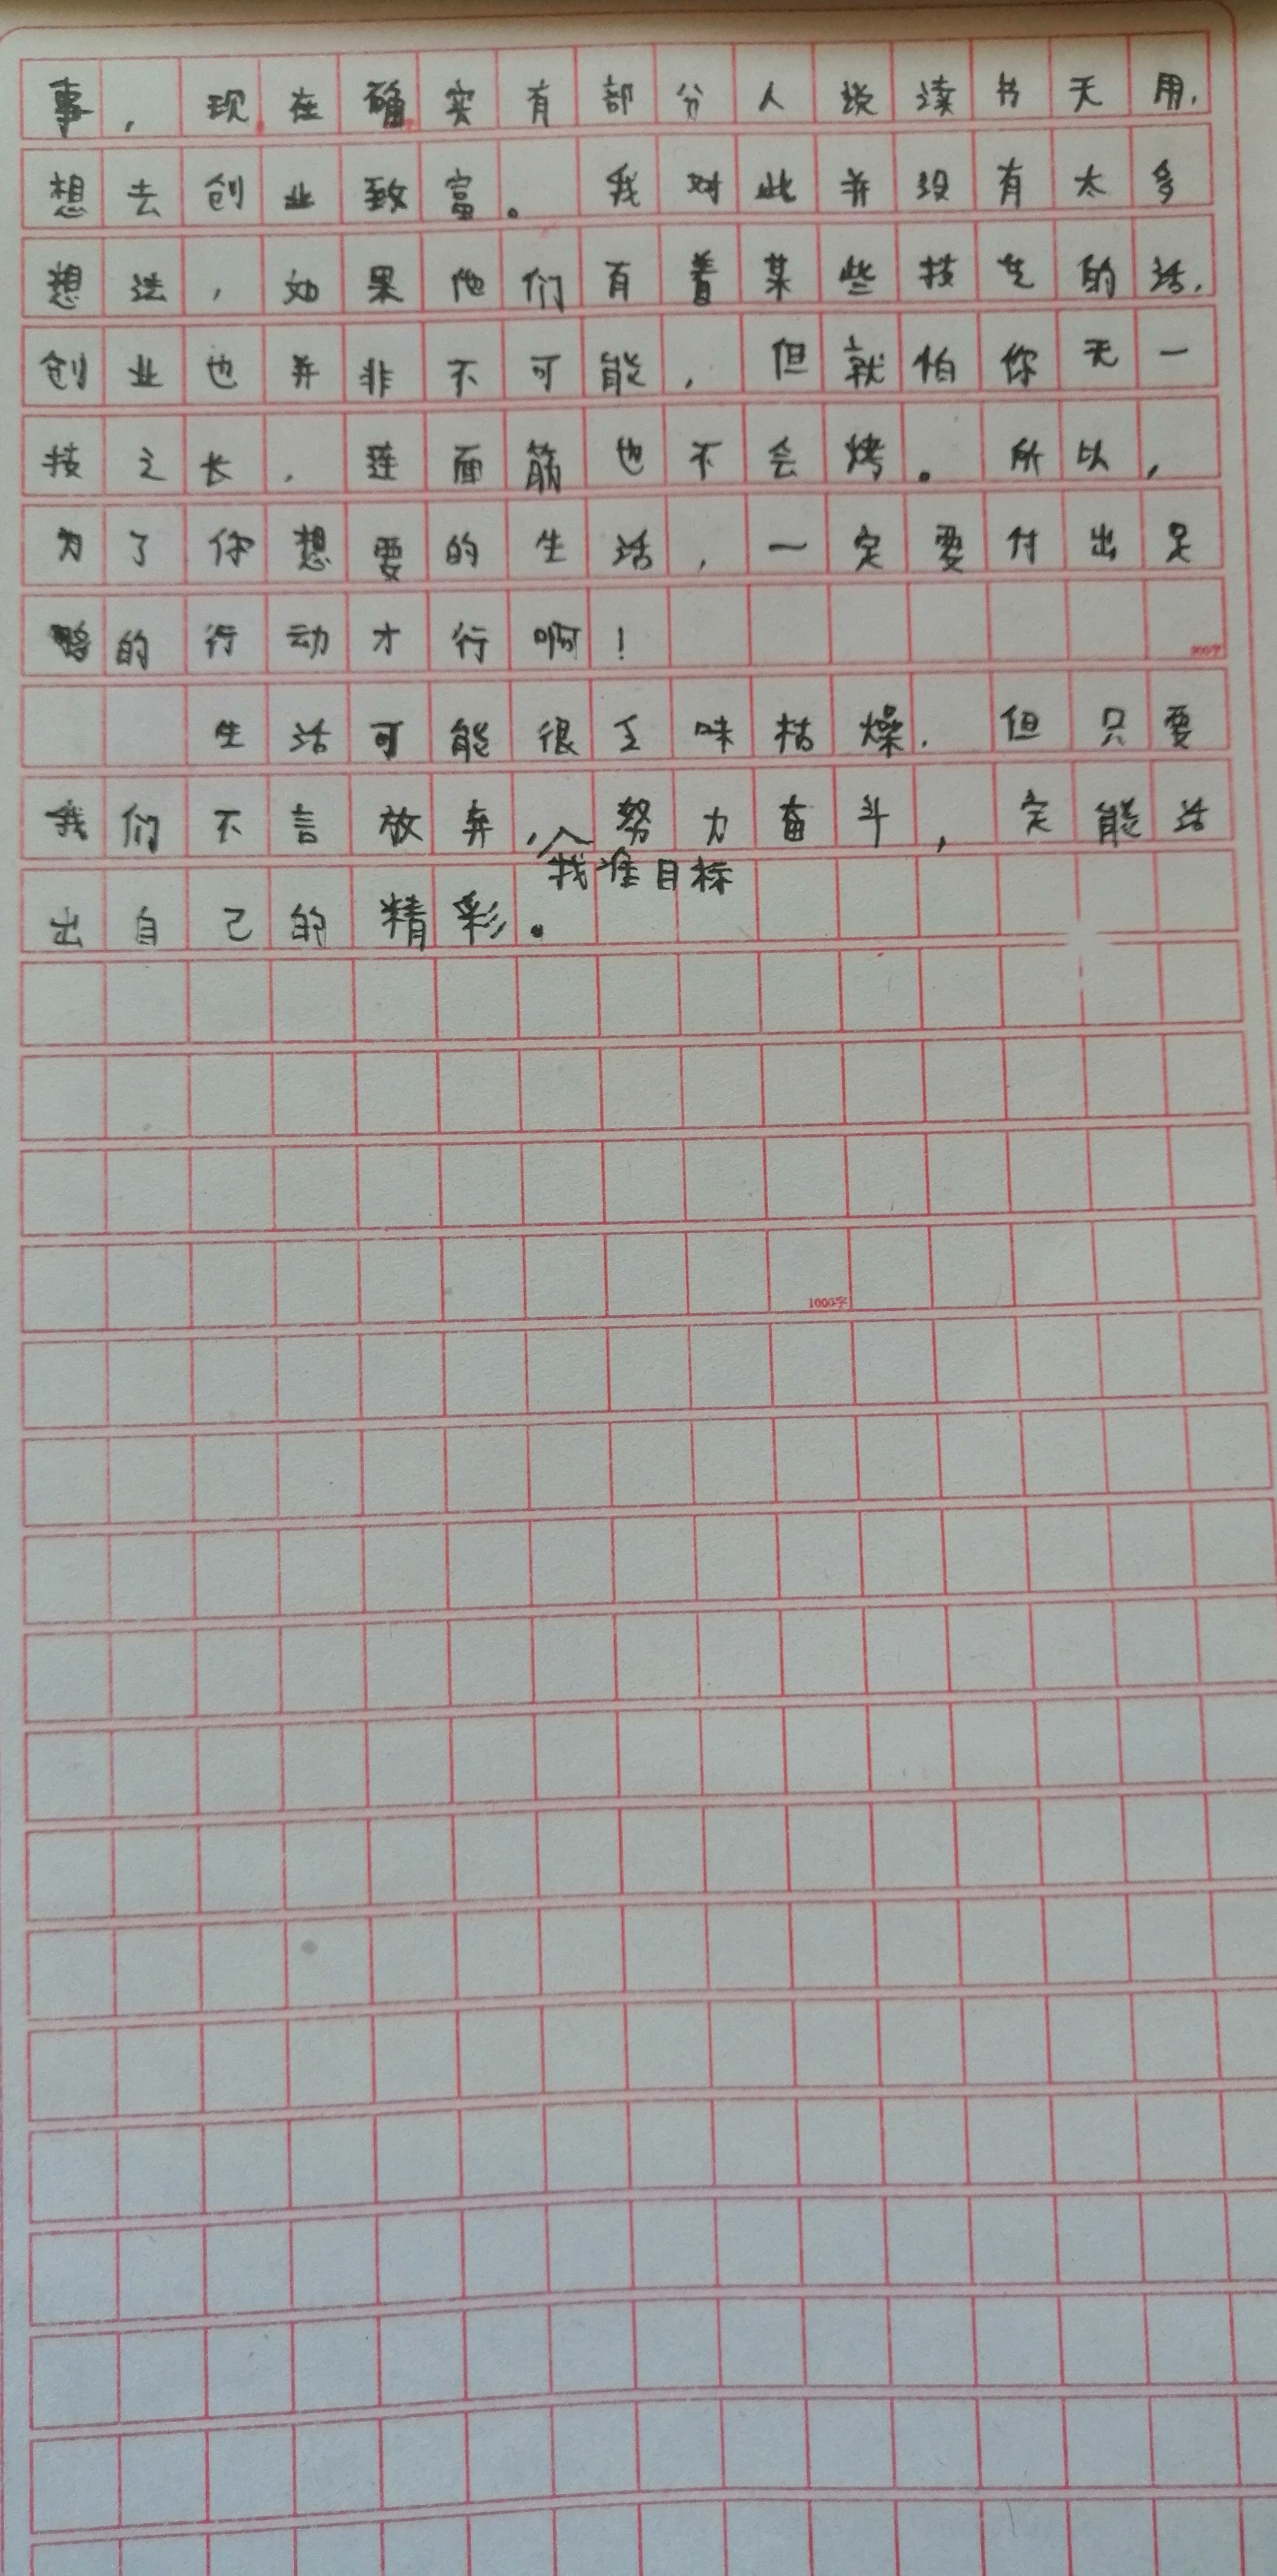 事，现在确实有部分人说读书无用，
想去创业致富。我对此并没有太多
想法，如果他们有着某些技艺的话，
创业也并非不可能，但就怕你无一
技之长，连面筋也不会烤。所以，
为了你想要的生活，一定要付出足
够的行动才行啊！
800字
生活可能很乏味枯燥，但只要
我们不言放弃，努力奋斗，定能活
找准目标
出自己的精彩。
1000字